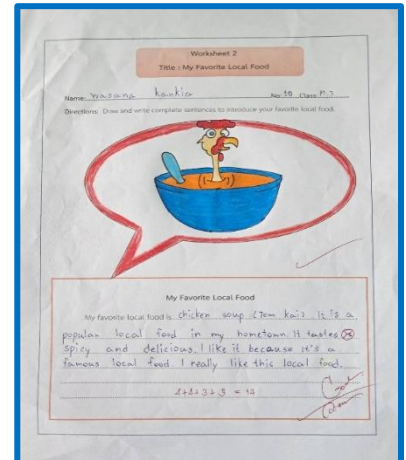 Worksheet 2
Title : My Favorite Local Food
Name: No. 10 Class M.3
Directions: Draw and write complete sentences to introduce your favorite local food.
My Favorite Local Food
My favorite local food is chicken soup (Tom kai). It is a
popular local food in my hometown. It tastes
spicy and delicious. I like it because it's a
famous local food. I really like this local food.
4+4+3+3 = 14
Good